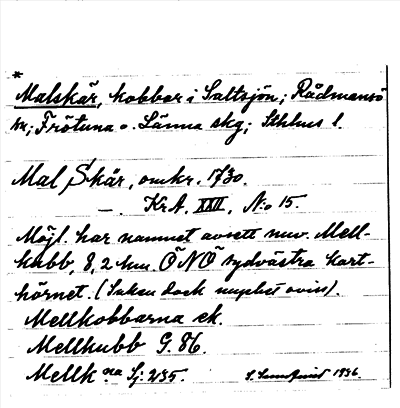 *
Malskär, kobbar i Saltsjön; Rådmansö
sn; Frötuna o. Länna skg; Sthlms l.
Mal Skär, omkr. 1730.
— . Kr.A. XXII, N:o 15.
Möjl. har namnet avsett nuv. Mell-
kubb, 8,2 km. ÖNÖ sydvästra kart-
hörnet. (Saken dock mycket oviss).
Mellkobbarna ek.
Mellkubb G. 86.
Mellk na Sj. 235. 1936.